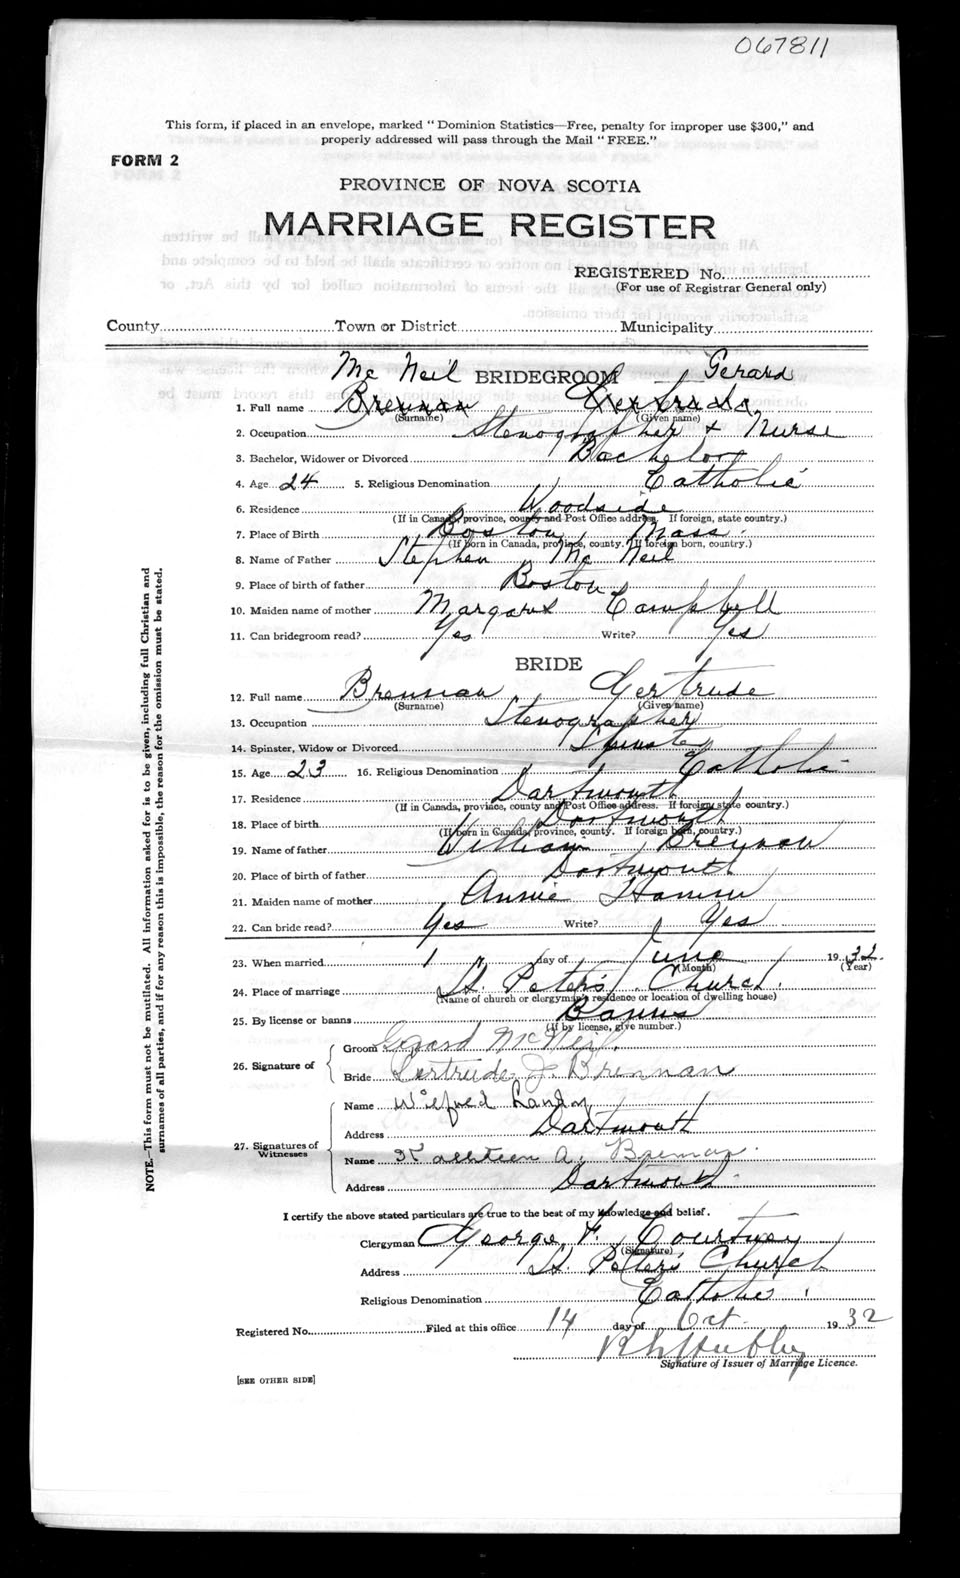 067811
This form, if placed in an envelope, marked "Dominion Statistics—Free, penalty for improper use $300," and
properly addressed will pass through the Mail "FREE."
FORM 2
PROVINCE OF NOVA SCOTIA
MARRIAGE REGISTER
REGISTERED No.
(For use of Registrar General only)
County Town or District Municipality
Mc Neil BRIDEGROOM Gerard
1. Full name Brennan Gertrude
(Surname) (Given name)
2. Occupation Stenographer & Nurse
3. Bachelor, Widower or Divorced Bachelor
4. Age 24 5. Religious Denomination Catholic
6. Residence Woodside
(If in Canada, province, county and Post Office address. If foreign, state country.)
7. Place of Birth Boston Mass.
(If born in Canada, province, county. If foreign born, country.)
8. Name of Father Stephen Mc Neil
9. Place of birth of father Boston
10. Maiden name of mother Margaret Campbell
11. Can bridegroom read? Yes Write? Yes
BRIDE
12. Full name Brennan Gertrude
(Surname) (Given name)
13. Occupation Stenographer
14. Spinster, Widow or Divorced Spinster
15. Age 23 16. Religious Denomination Catholic
17. Residence Dartmouth
(If in Canada, province, county and Post Office address. If foreign, state country.)
18. Place of birth Dartmouth
(If born in Canada, province, county. If foreign born, country.)
19. Name of father William Brennan
20. Place of birth of father Dartmouth
21. Maiden name of mother Annie
22. Can bride read? Yes Write? Yes
23. When married 1 day of June 1932.
(Month) (Year)
24. Place of marriage St. Peter's Church.
(Name of church or clergyman's residence or location of dwelling house)
25. By license or banns Banns
(If by license, give number.)
26. Signature of Groom Gerard McNeil.
Bride Gertrude J. Brennan
27. Signatures of Witnesses
Name Wilfred Landry
Address Dartmouth
Name Kathleen A. Brennan.
Address Dartmouth.
I certify the above stated particulars are true to the best of my knowledge and belief.
Clergyman George F. Courtney
(Signature)
Address St. Peter's Church
Religious Denomination Catholic.
Registered No. Filed at this office 14 day of Oct. 1932
Signature of Issuer of Marriage Licence.
[SEE OTHER SIDE]
NOTE.—This form must not be mutilated. All information asked for is to be given, including full Christian and
surnames of all parties, and if for any reason this is impossible, the reason for the omission must be stated.